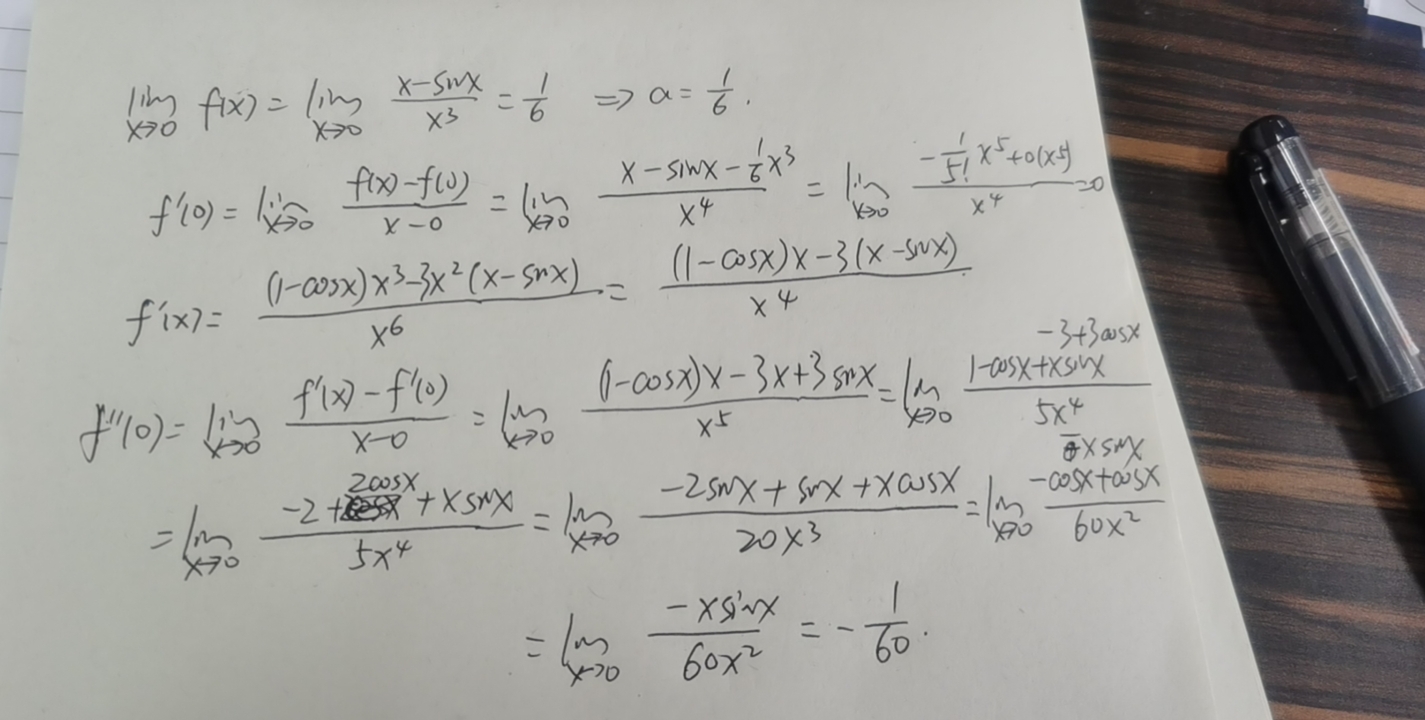 lim x→0 f(x) = lim x→0 (x-sinx)/x³ = 1/6 ⇒ a = 1/6.
f'(0) = lim x→0 (f(x)-f(0))/(x-0) = lim x→0 (x-sinx-1/6 x³)/x⁴ = lim x→0 (-1/5! x⁵+o(x⁵))/x⁴ =0
f'(x) = ((1-cosx)x³-3x²(x-sinx))/x⁶ = ((1-cosx)x-3(x-sinx))/x⁴
f''(0) = lim x→0 (f'(x)-f'(0))/(x-0) = lim x→0 ((1-cosx)x-3x+3sinx)/x⁵ = lim x→0 (1-cosx+xsinx-3+3cosx)/5x⁴
= lim x→0 (-2+2cosx+xsinx)/5x⁴ = lim x→0 (-2sinx+sinx+xcosx)/20x³ = lim x→0 (-cosx+cosx-xsinx)/60x²
= lim x→0 (-xsinx)/60x² = -1/60.